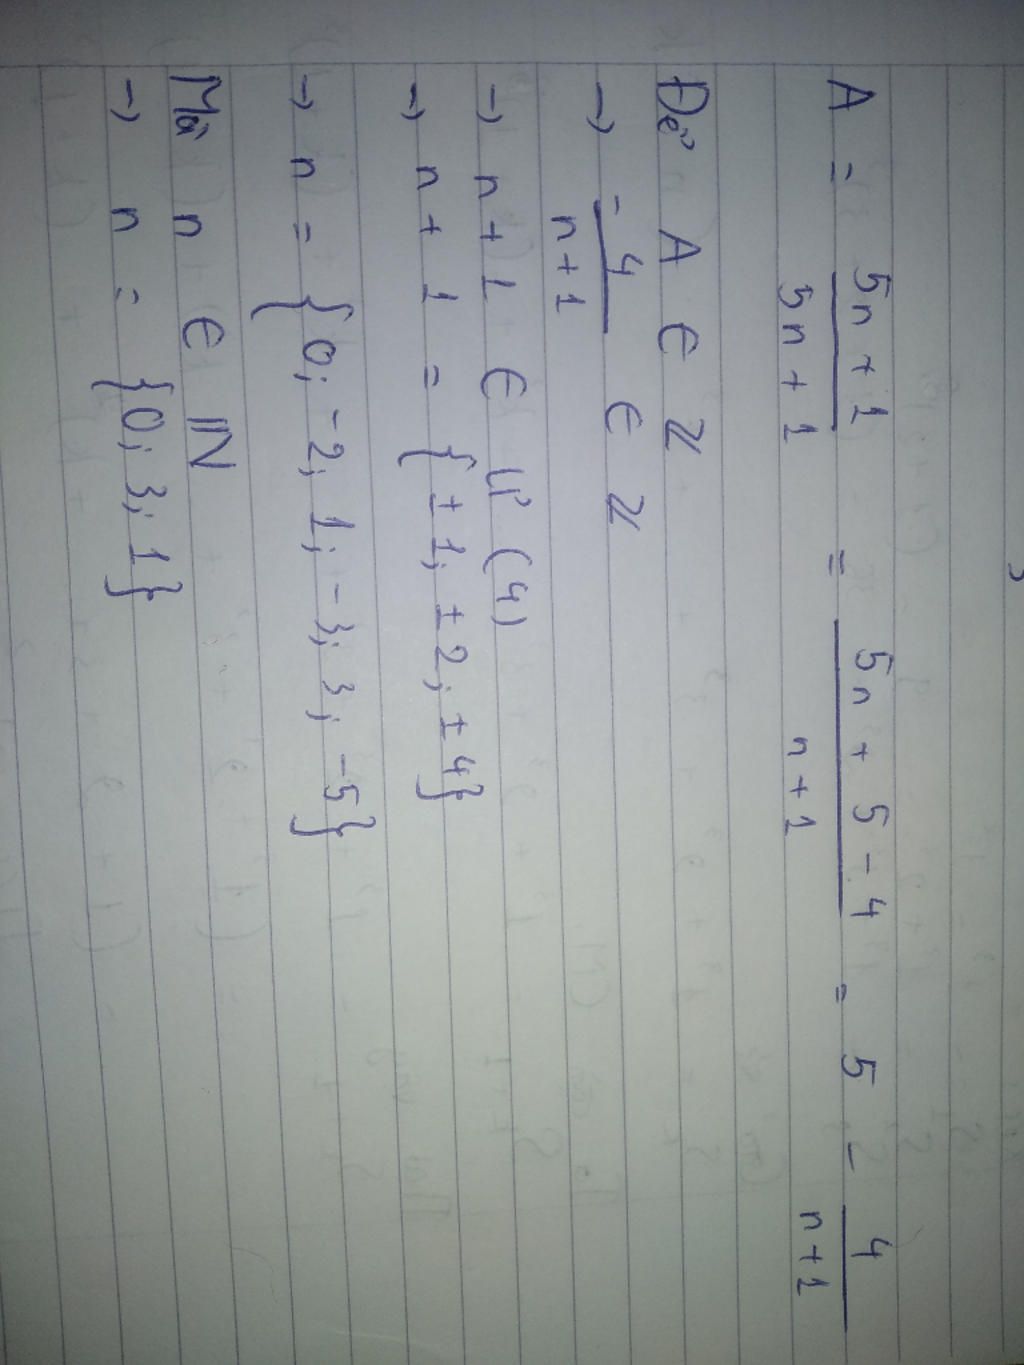 A = 5n + 1 / 5n + 1 = 5n + 5 - 4 / n + 1 = 5 - 4 / n + 1
Để A ∈ Z
→ - 4 / n + 1 ∈ Z
→ n + 1 ∈ Ư (4)
→ n + 1 = { ± 1; ± 2; ± 4}
→ n = { 0; -2; 1; -3; 3; -5 }
Mà n ∈ IN
→ n = {0; 3; 1}